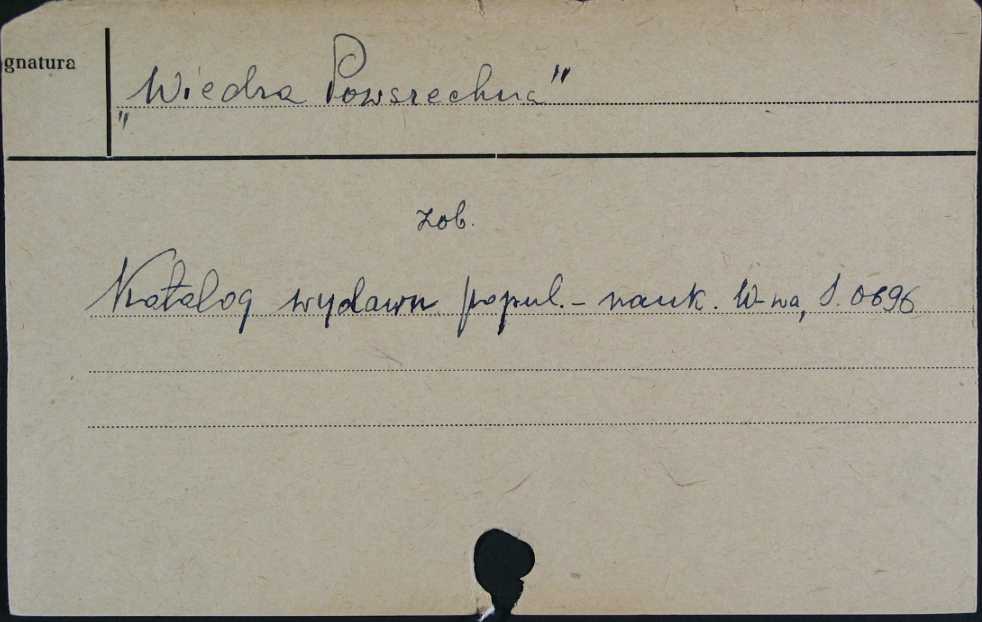 gnatura
„Wiedza Powszechna"
zob.
Katalog wydawn popul. - nauk. W-wa, S. 0696